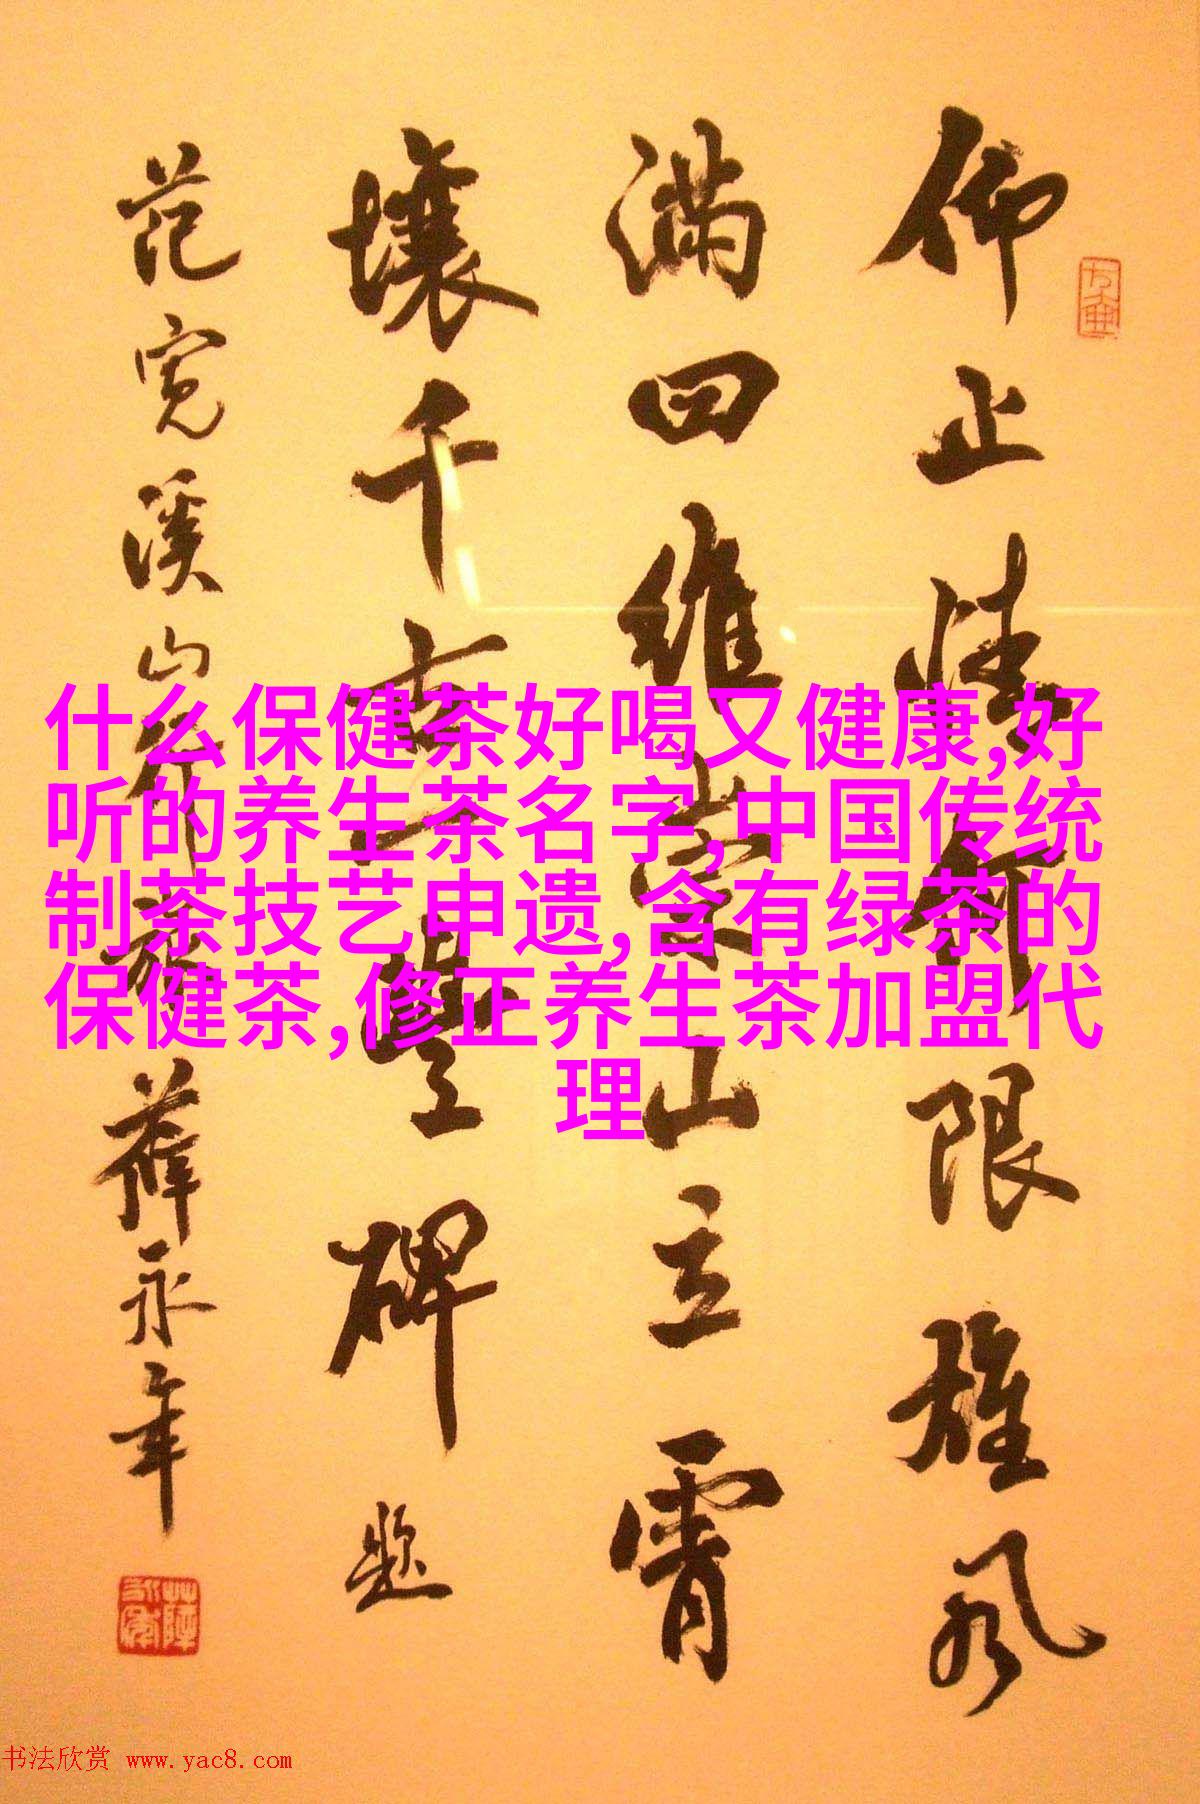 仰止情限雄风
满四维崇山立霄
壤千古一豐碑题
范宽溪山行旅薛永年
什么保健茶好喝又健康,好
听的养生茶名字,中国传统
制茶技艺申遗,含有绿茶的
保健茶,修正养生茶加盟代
理
书法欣赏 www.yac8.com